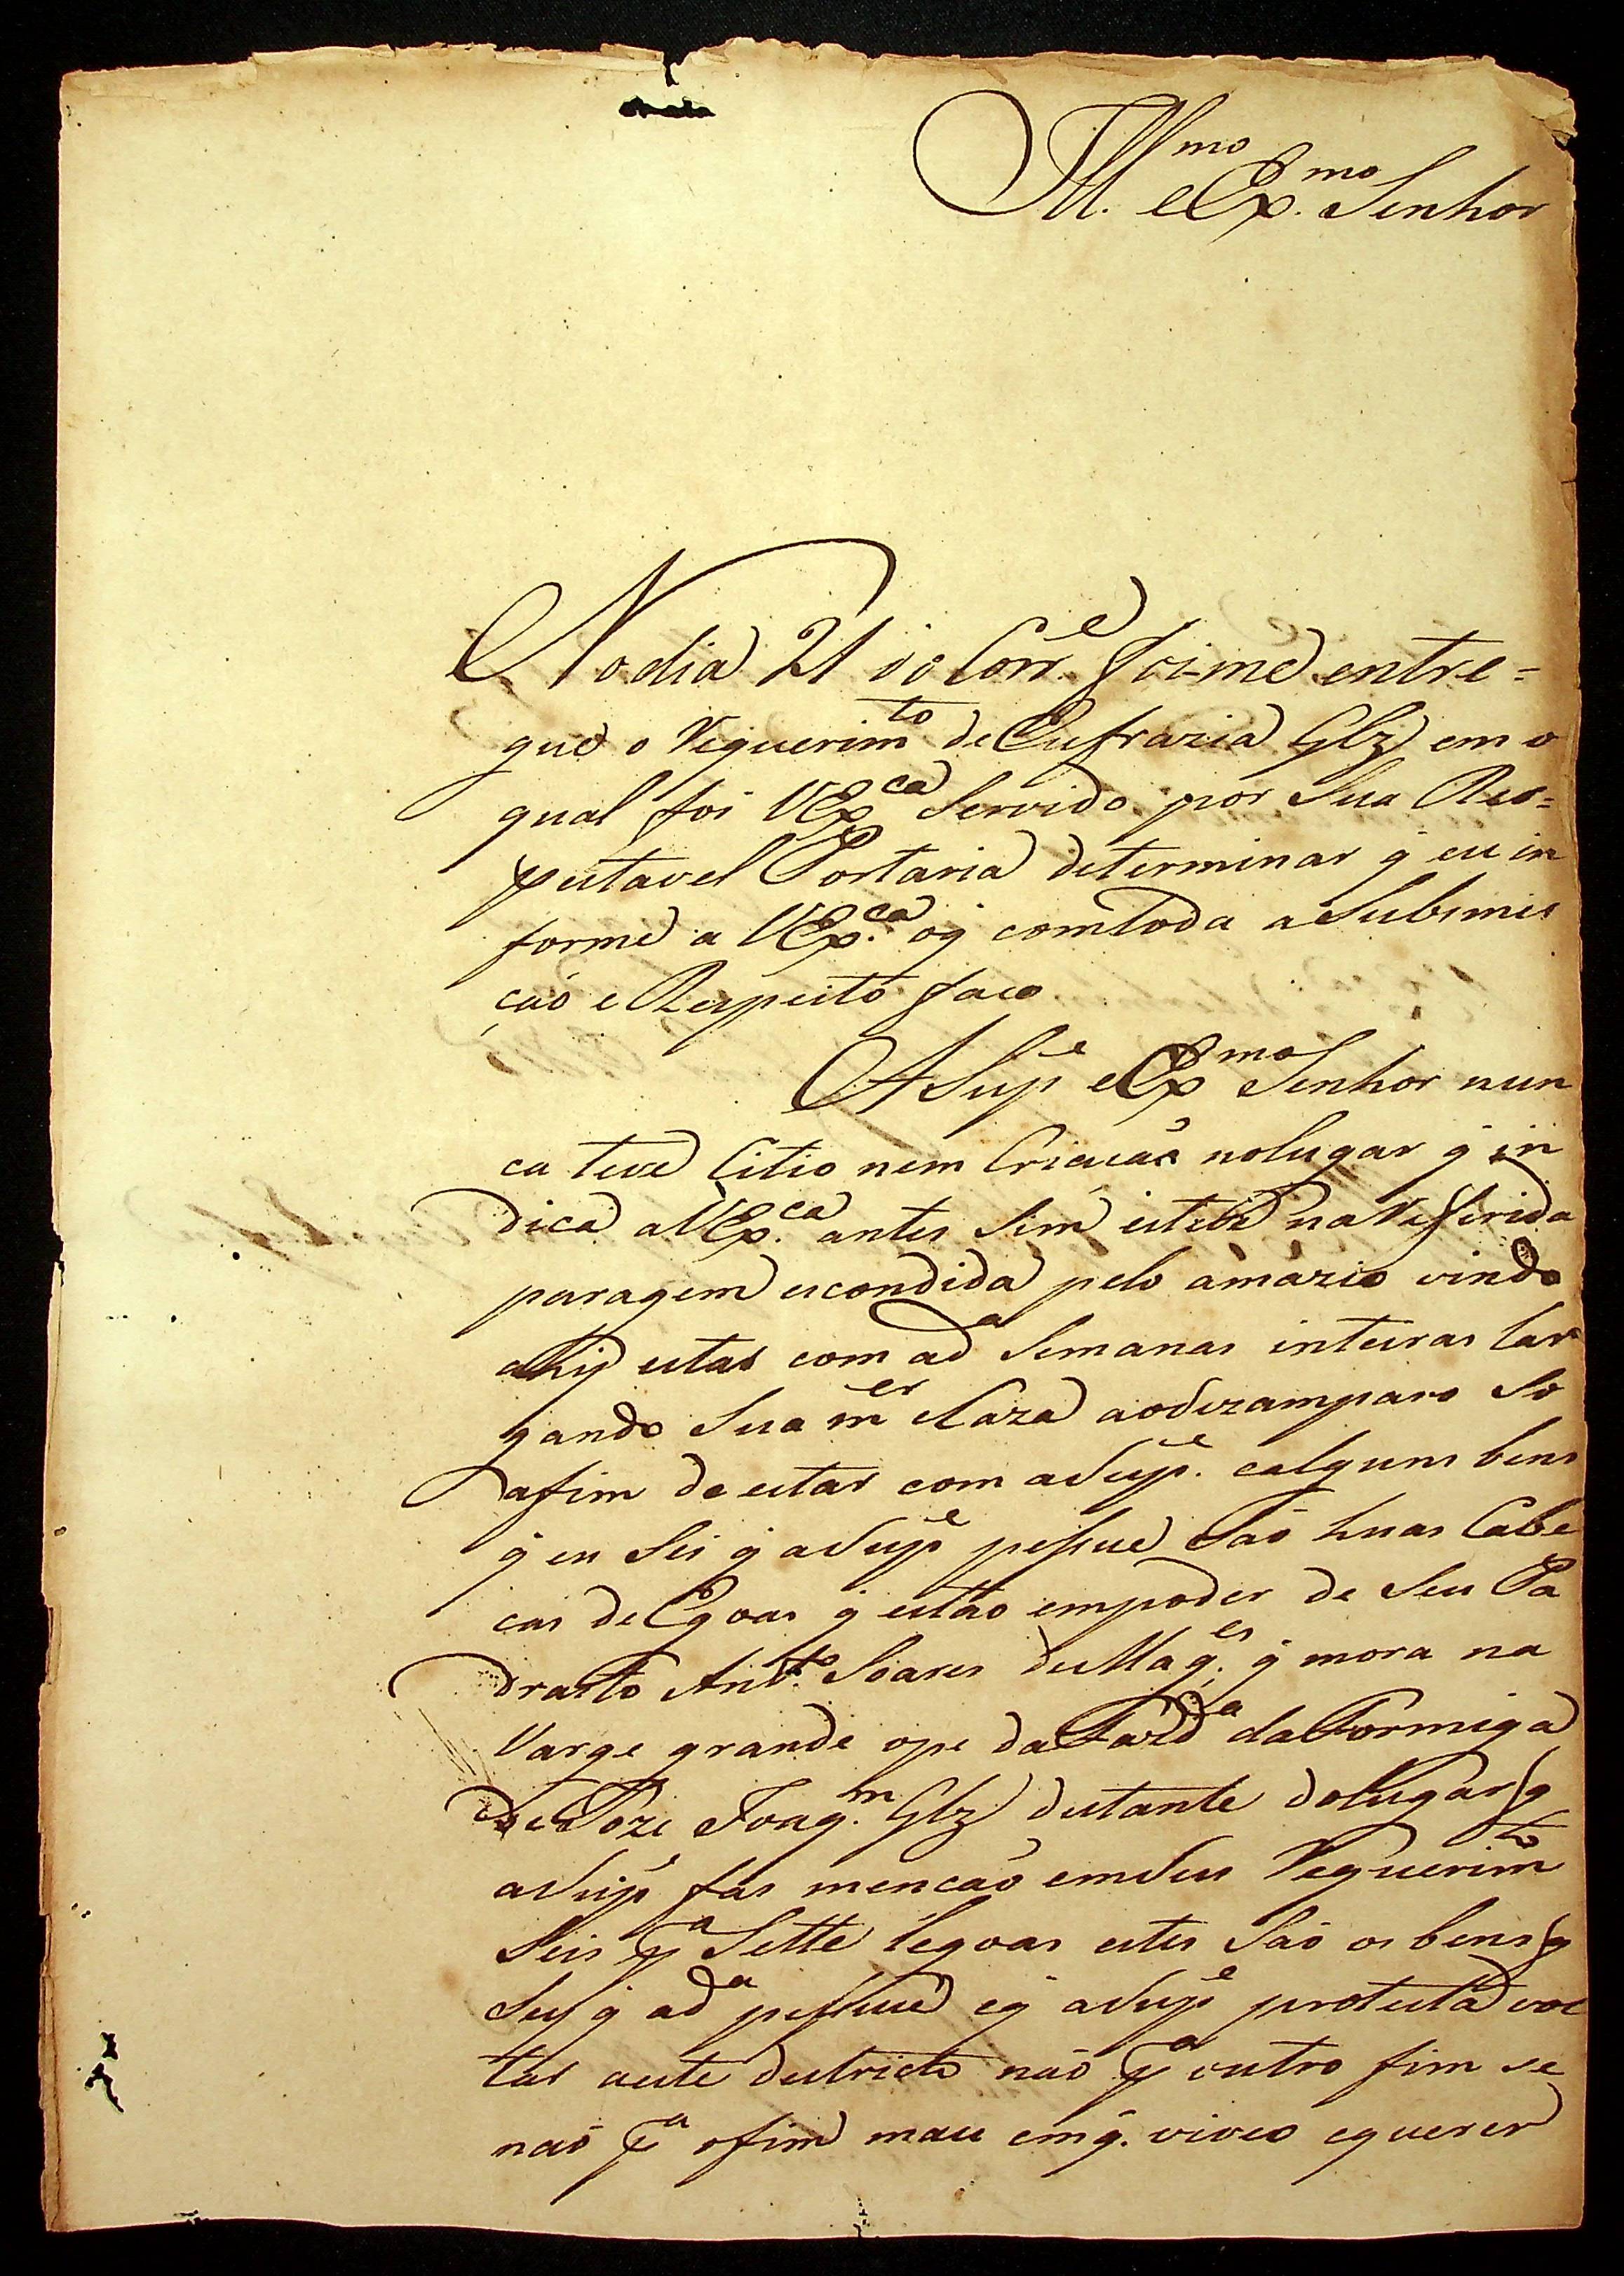 Ill.mo e Ex.mo Senhor
No dia 21 do Corr.e foi-me entre=
gue o Requerim.to de Eufrazia Glz em o
qual foi VEx.ca Servido por Sua Res=
peitavel Portaria determinar q̃ eu in
forme a VEx.ca oq̃ com toda a Submis
ção e Respeito faco
A Sup.e eEx.mo Senhor nun
ca teve Citio nem Criação nolugar q̃ in
dica aVEx.ca antes Sim esteve na Referida
paragem escondida pelo amazio vindo
ahy estar com ad.a Semanas inteiras lar
gando Sua m.er eCaza aodezamparo So
afim de estar com aSup.e ealguns bens
q̃ eu Sei q̃ aSup.e pessue São huas Cabe
cas de Egoas q̃ estão empoder de Seu Pa
drasto Ant.o Soares de Mag.es q̃ mora na
Varge grande ope da Fazd.a da Formiga
de Joze Joaq.m Glz distante dolugar q̃
aSup.e fas mencão emSeu Requerim.to
Seis p.a Sette legoas estes São os bens q̃
Sey q̃ ad.a pessue eq̃ aSup.e protesta vol
tar aeste destricto não p.a outro fim se
não p.a ofim mau emq̃. viveo equerer